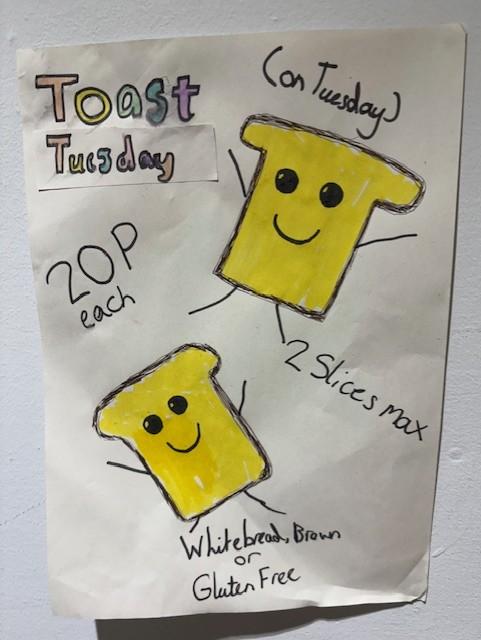 Toast
Tuesday
(on Tuesday)
20P
each
2 Slices max
Whitebread, Brown
or
Gluten Free